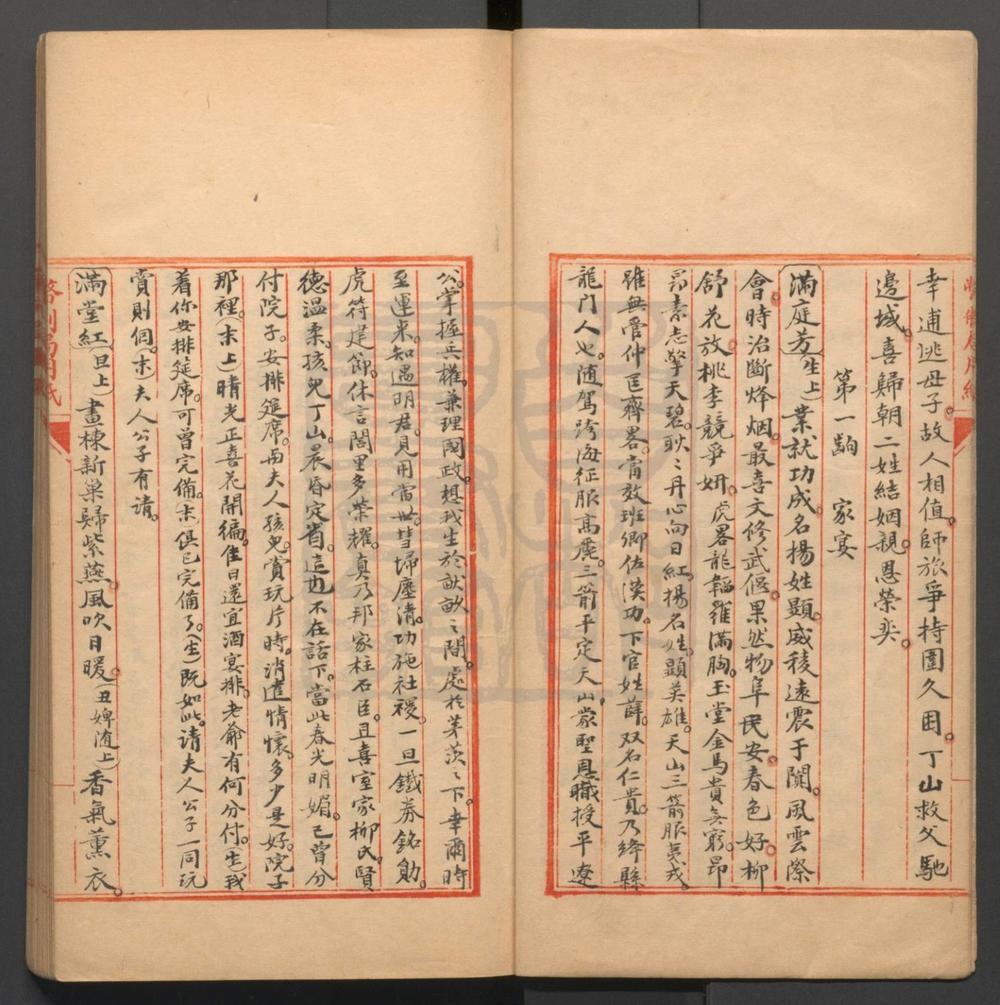 幸逋逃母子。故人相值。師旅爭持圍久困。丁山救父馳
邊域。喜歸朝二姓結姻親。恩榮奕。
第一齣　家宴
滿庭芳(生上)業就功成。名揚姓顯。威稜遠震于闐。風雲際
會。時治斷烽烟。最喜文修武偃。果然物阜民安。春色好。柳
舒花放。桃李競爭妍。虎畧龍韜羅滿胸。玉堂金馬貴無窮。昂
昂素志擎天碧。耿〻丹心向日紅。揚名姓。顯英雄。天山三箭服羌戎。
雖無管仲匡齊畧。嘗效班卿佐漢功。下官姓薛。双名仁貴。乃絳縣
龍門人也。随駕跨海征服高麗。三箭平定天山。蒙聖恩職授平遼
公。掌握兵權。兼理國政。想我生於畎畝之間。處於茅茨之下。幸爾時
至運来。知遇明君。見用當世。彗埽塵清。功施社稷。一旦鐵券銘勛。
虎符建節。休言閭里多榮耀。真乃邦家柱石臣。且喜室家柳氏。賢
德温柔。孩兒丁山。晨昏定省。這也不在話下。當此春光明媚。已曾分
付院子。安排筵席。與夫人孩兒。賞玩片時。消遣情懷。多少是好。院子
那裡。(末上)晴光正喜花開徧。佳日還宜酒宴排。老爺有何分付。(生)我
着你安排筵席。可曾完備。(末)俱已完備了。(生)既如此。請夫人公子一同玩
賞則個。(末)夫人公子有請。
滿堂紅(旦上)畫棟新巢歸紫燕。風吹日暖。(丑婢随上)香氣薰衣。